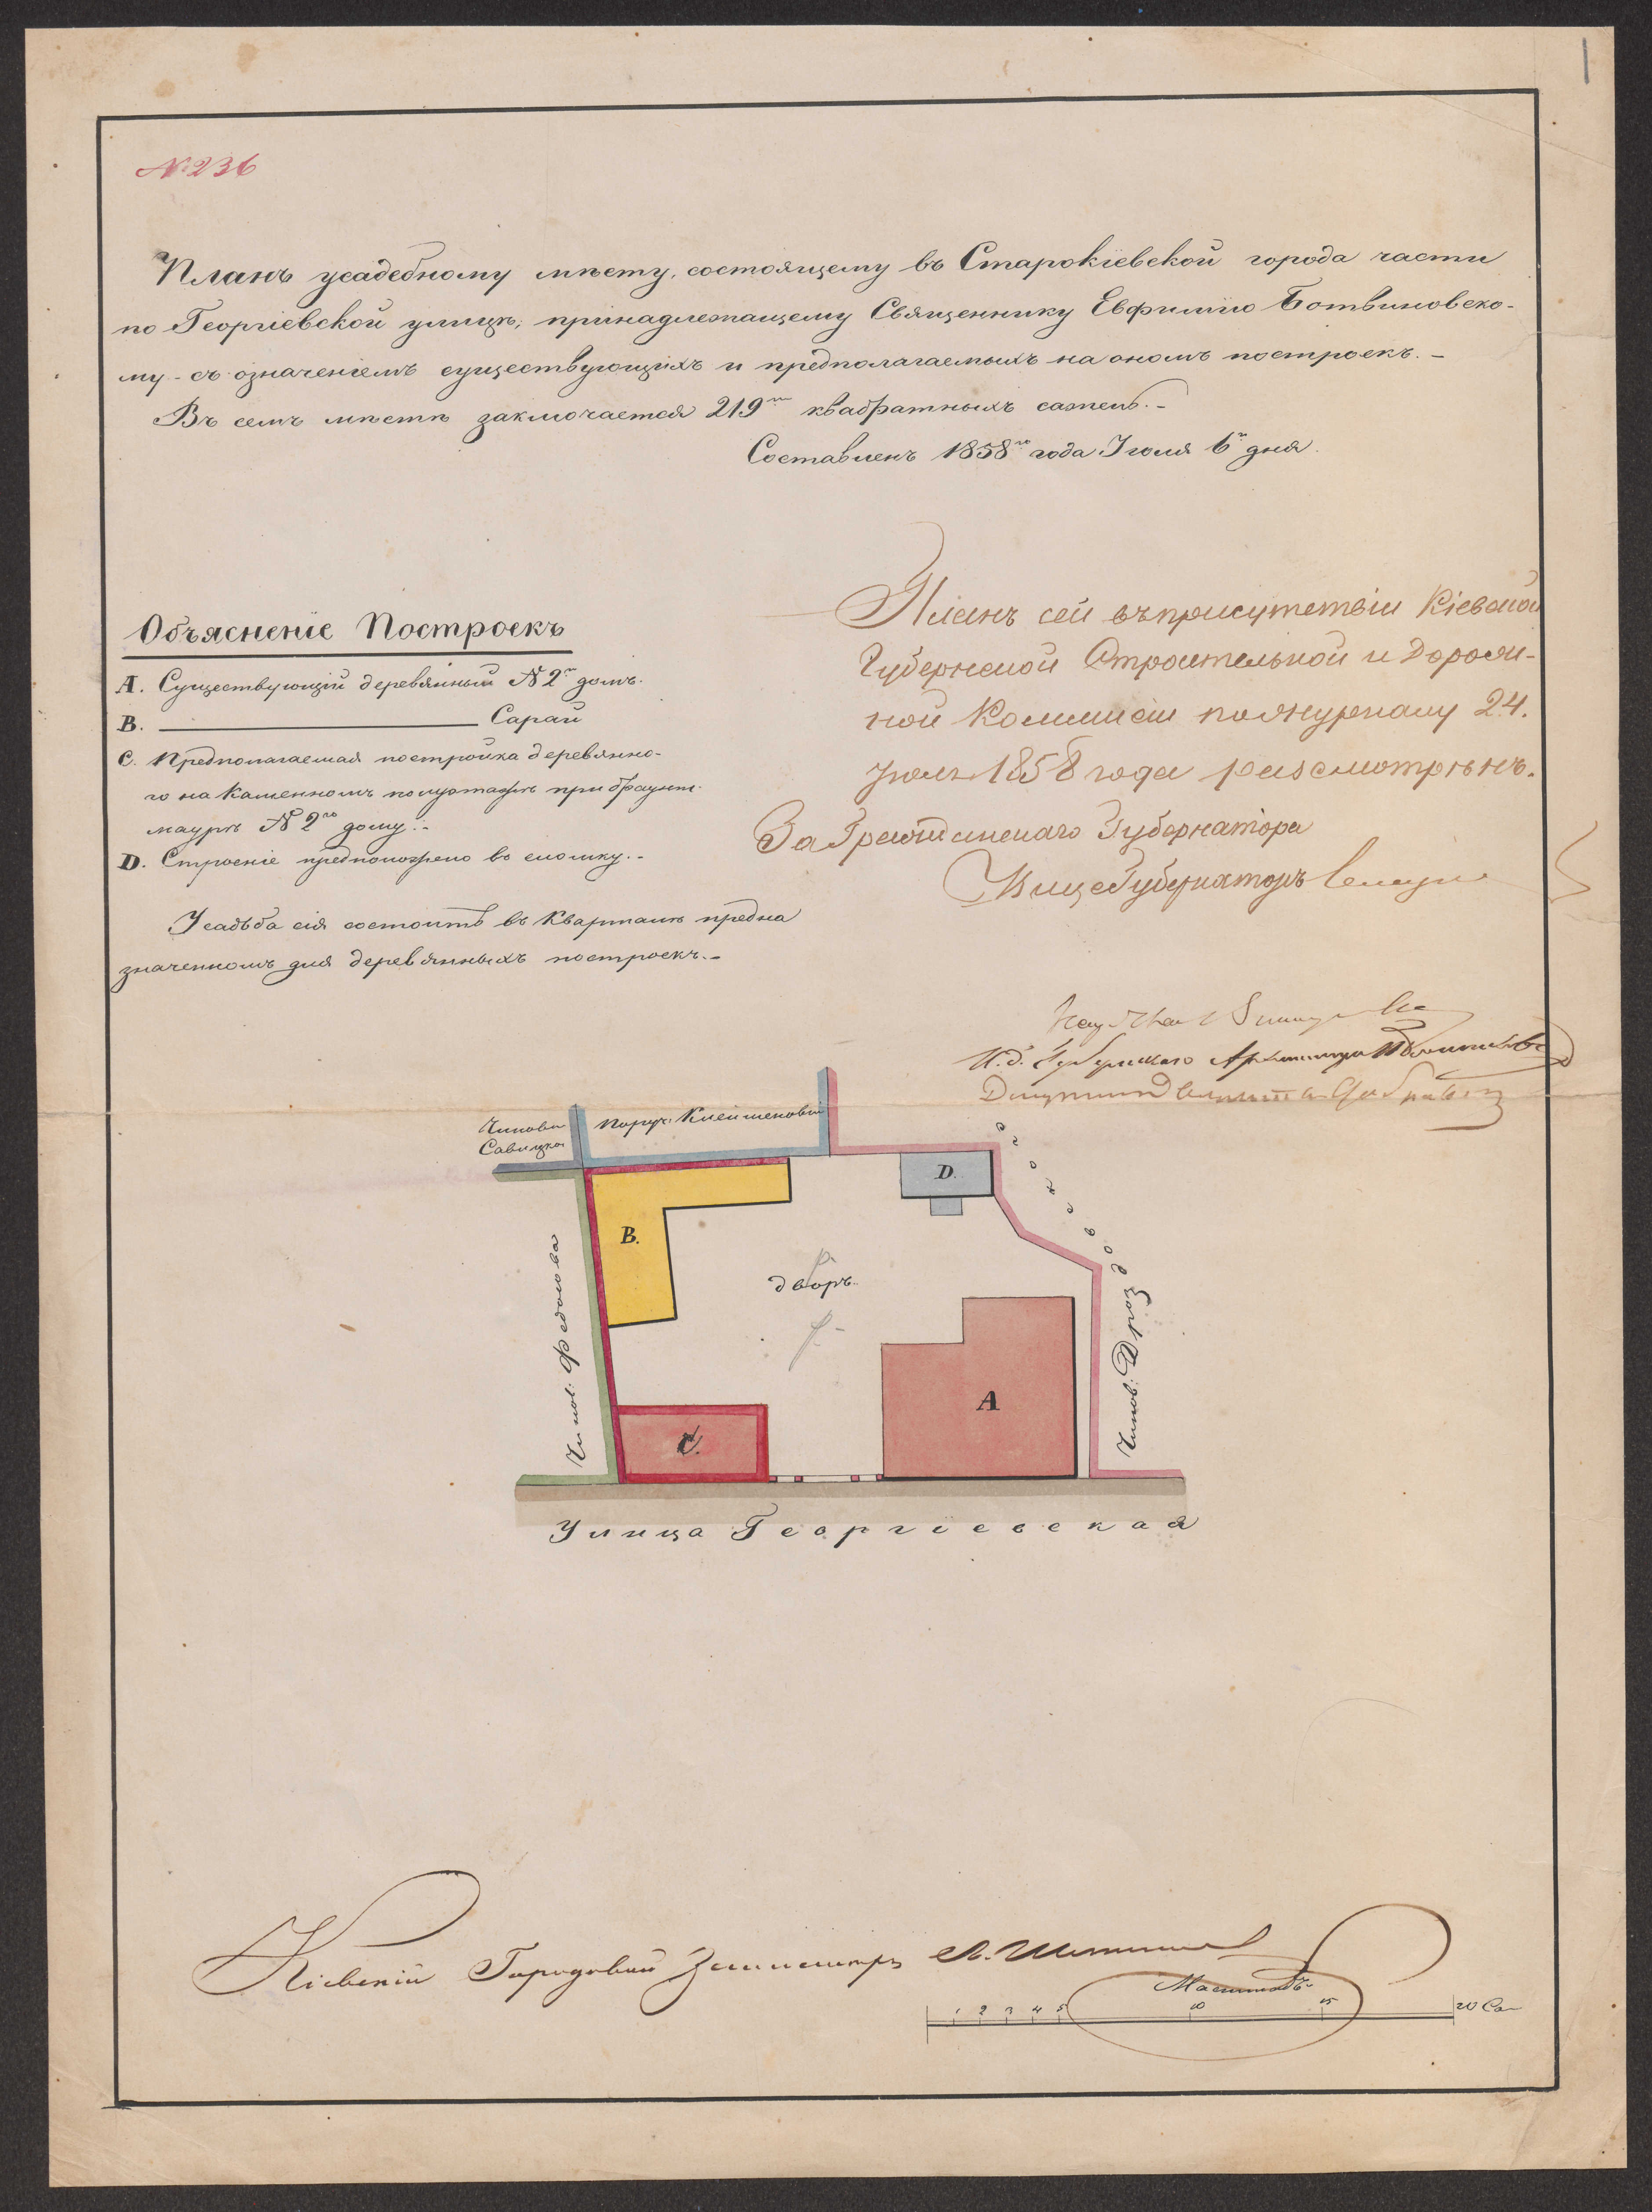 № 236
Планъ усадебному мѣсту, состоящему въ Старокіевской города части
по Георгіевской улицѣ, принадлежащему Священнику Евфимію Ботвиновско-
му - съ означеніемъ существующихъ и предполагаемыхъ на ономъ построекъ. -
Въ семъ мѣстѣ заключается 219 квадратныхъ сажень. -
Составленъ 1858го года Іюля 6го дня.
Объясненіе Построекъ
A. Существующій деревянный № 2й домъ.
B. ——— Сарай
C. Предполагаемая постройка деревянно-
го на каменномъ полуэтажѣ при брандт-
маурѣ № 2го дому. -
D. Строеніе предположено въ сломку. -
Усадьба сія состоитъ въ Кварталѣ предна
значенномъ для деревянныхъ построекъ. -
Планъ сей въ присутствіи Кіевской
Губернской Строительной и Дорож-
ной Коммисіи по журналу 24.
Іюля 1858 года разсмотрѣнъ.
За Гражданскаго Губернатора
Вице Губернаторъ
И. д. Губернскаго Архитектора
Чинов.
Савицкаго
Поруч. Клейменовой
D.
B.
Чинов: Федотова
дворъ.
Чинов: Дроздовскаго
A
C.
Улица Георгіевская
Кіевскій Городовой Землемѣръ
Масштабъ
1 2 3 4 5 10 15 20 Са